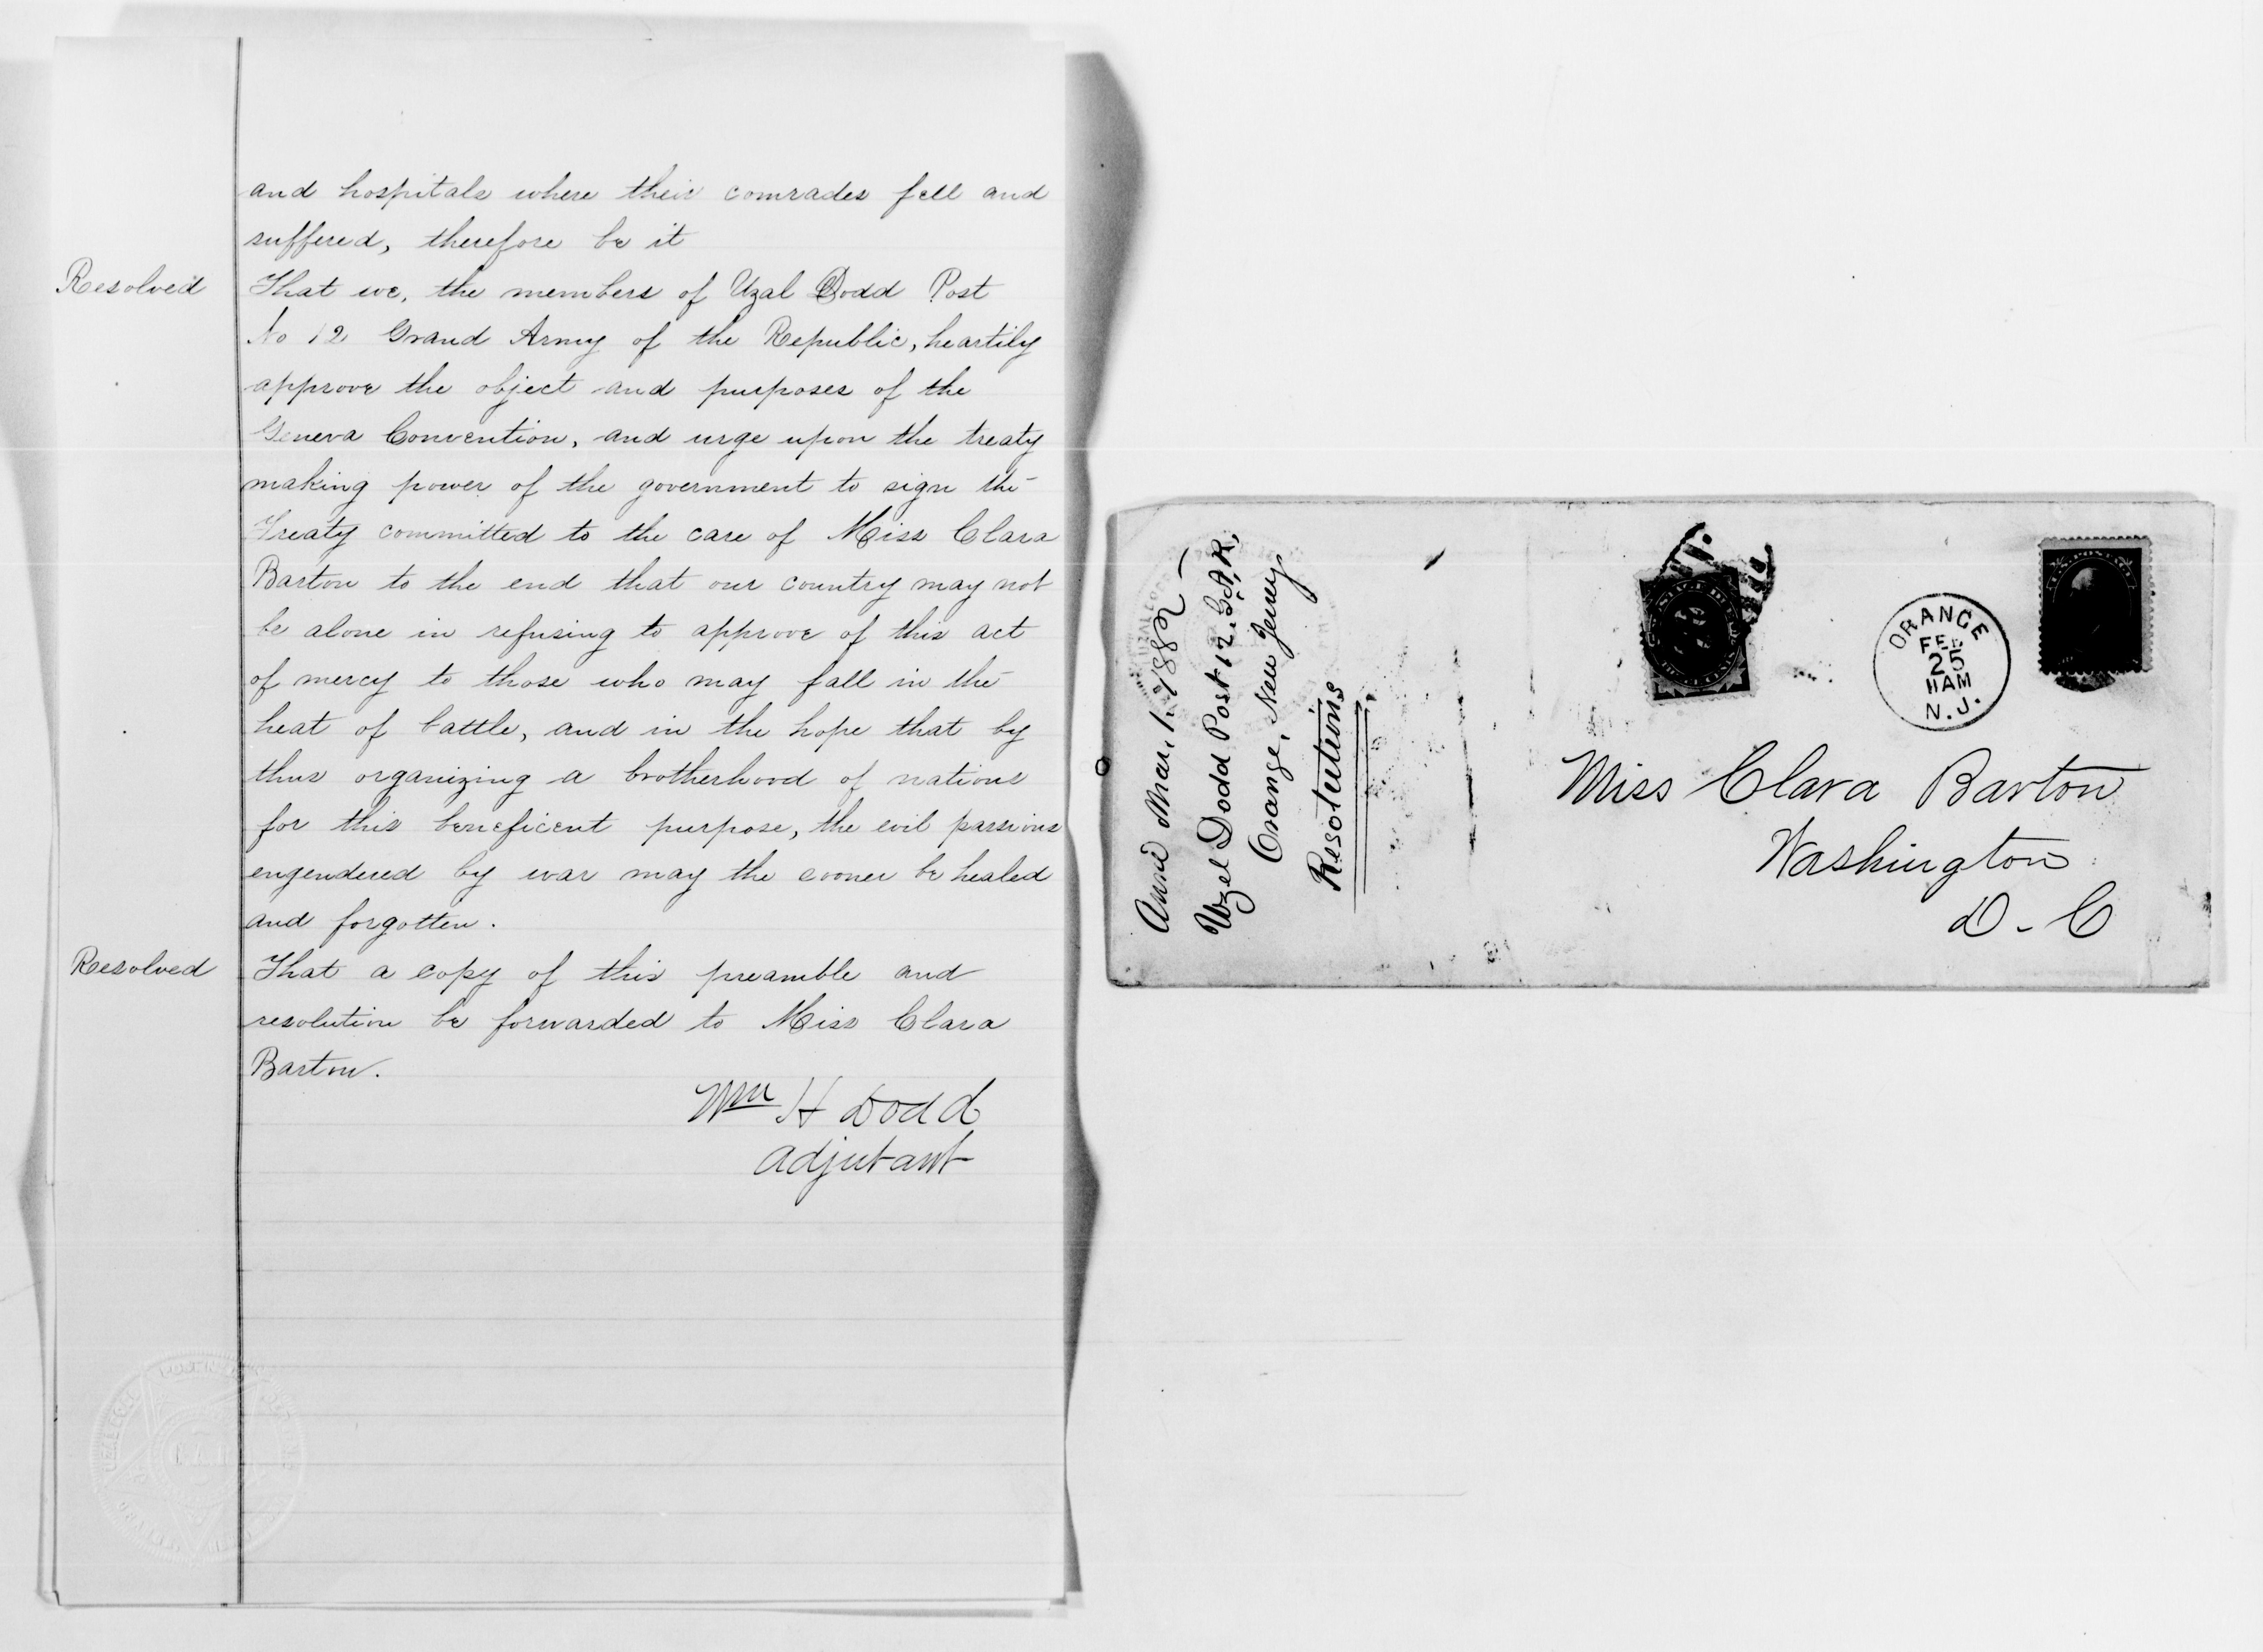 and hospitals where their comrades fell and
suffered, therefore be it
Resolved That we, the members of Uzal Dodd Post
No 12 Grand Army of the Republic, heartily
approve the object and purposes of the
Geneva Convention, and urge upon the treaty
making power of the government to sign the
Treaty committed to the care of Miss Clara
Barton to the end that our country may not
be alone in refusing to approve of this act
of mercy to those who may fall in the
heat of battle, and in the hope that by
thus organizing a brotherhood of nations
for this beneficent purpose, the evil passions
engendered by war may the sooner be healed
and forgotten.
Resolved That a copy of this preamble and
resolution be forwarded to Miss Clara
Barton.
Wm H Dodd
Adjutant
Mar. 1. 1882
Uzel Dodd Post 12. G.A.R,
Orange, New Jersey
Resolutions
U.S. POSTAGE
POSTAGE DUE
ORANGE
FEB
25
11AM
N.J.
Miss Clara Barton
Washington
D-C